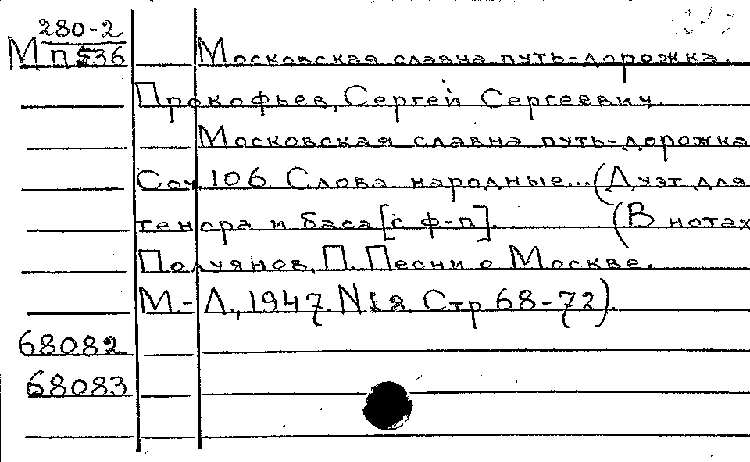 280-2
М п 536 Московская славна путь-дорожка.
Прокофьев, Сергей Сергеевич.
Московская славна путь-дорожка
Соч. 106 Слова народные... (Дуэт для
тенора и баса [с ф-п]. (В нотах
Полуянов, П. Песни о Москве.
М.-Л., 1947. №18 Стр 68-72).
68082
68083